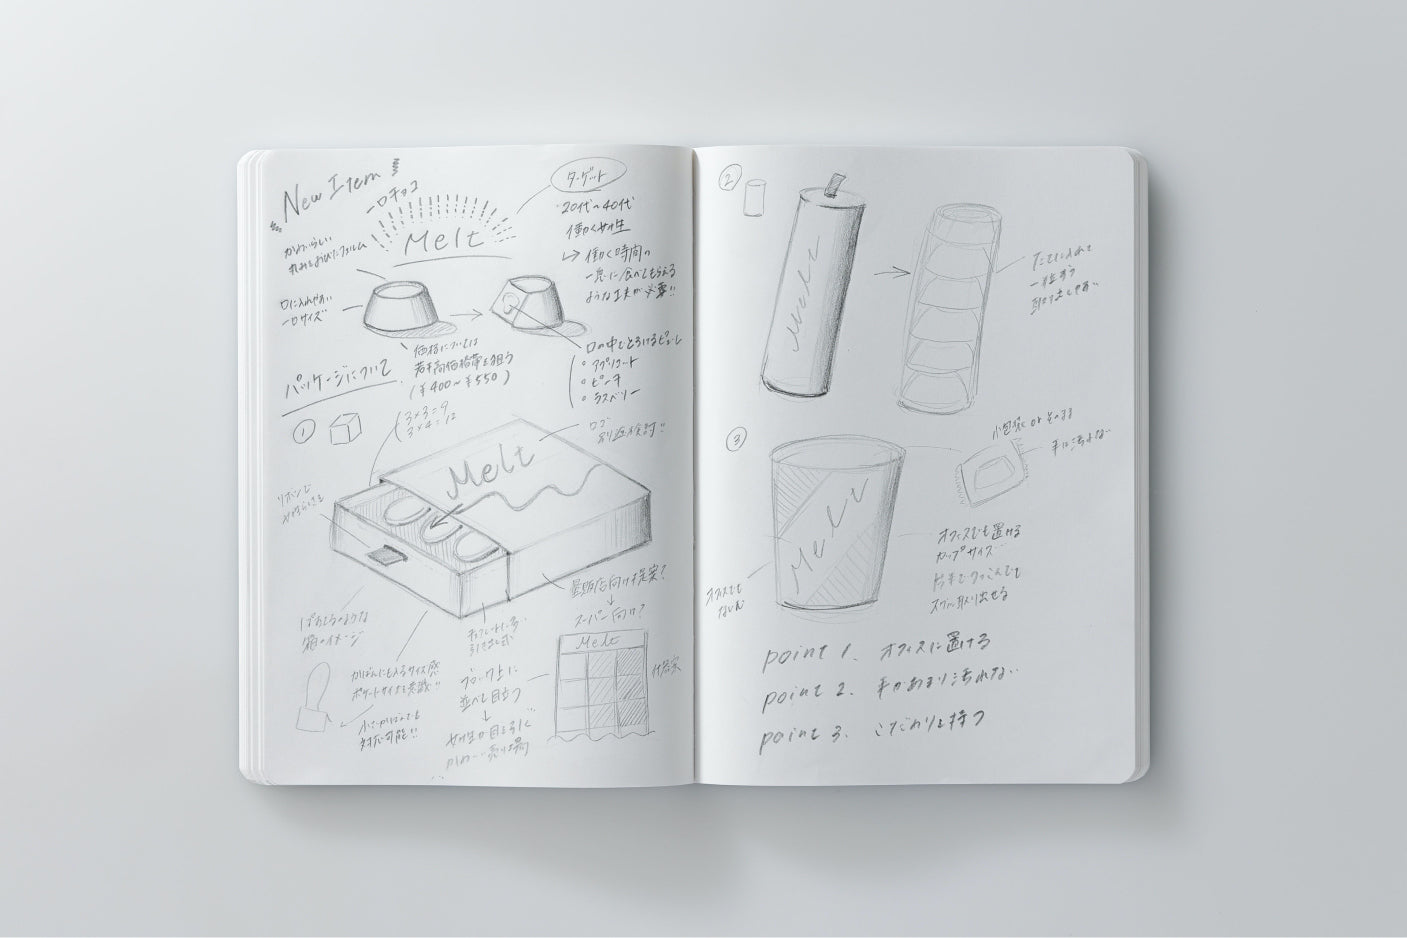 New Item!
一口チョコ
Melt
ターゲット
20代〜40代
働く女性
↳ 働く時間の
一息に食べてもらえる
ような工夫が必要!!
かわいらしい
丸みをおびたフォルム
口に入れやすい
一口サイズ
価格については
若干高価格帯を狙う
(¥400〜¥550)
口の中でとろけるピューレ
アプリコット
ピーチ
ラズベリー
パッケージについて
①
3×3=9
3×4=12
ロゴ
別途検討!!
Melt
リボンで
箱のイメージ
かばんにも入るサイズ感
ポケットサイズを意識!!
小さいかばんでも
対応可能!!
引き出し式
量販店向け提案?
↓
スーパー向け?
Melt
ブロック上に
並べて目立つ
↓
女性が目を引く
かわいい売り場
②
Melt
たてに入れて
一粒ずつ
取り出しやすい
③
Melt
小包装 or そのまま
手に汚れない
オフィスでも置ける
カップサイズ
片手でつっこんでも
スグに取り出せる
オフィスでも
point 1. オフィスに置ける
point 2. 手があまり汚れない
point 3. こだわりを持つ